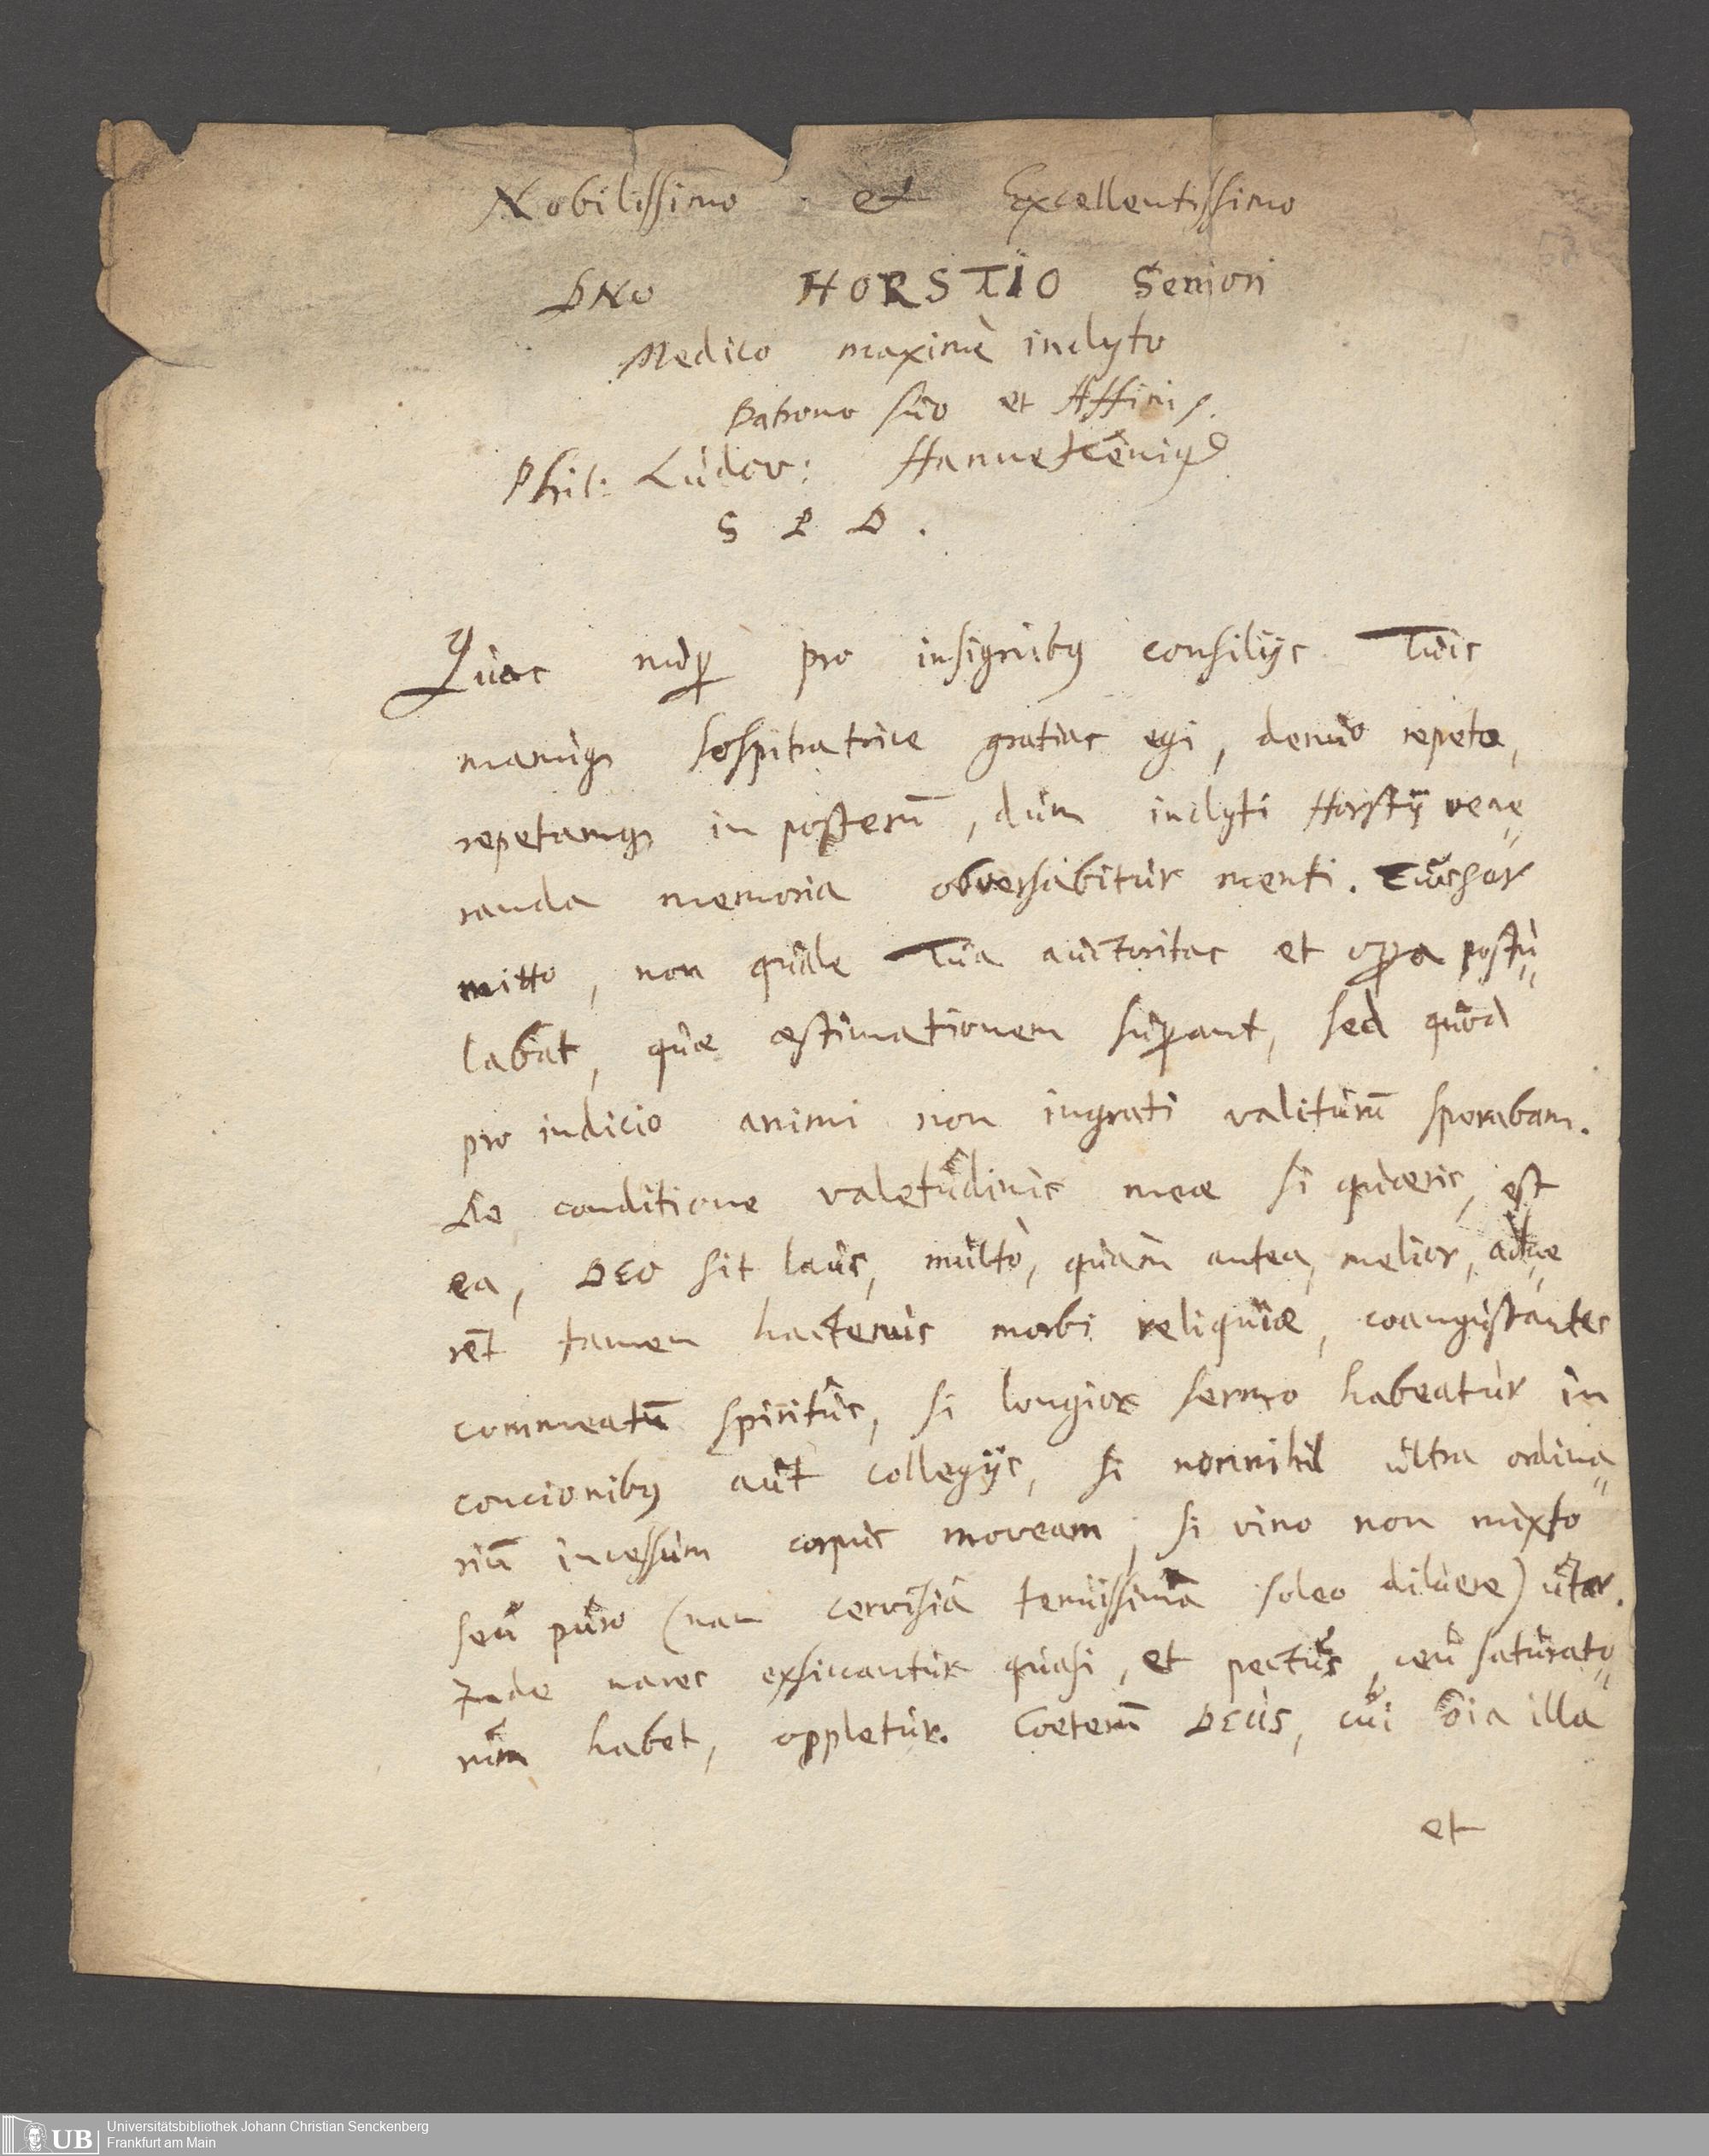 Nobilissimo et Excellentissimo
DNo HORSTIO Seniori
Medico maximè inclyto
Patrono suo et Affini
Phil: Ludov: Hanneken
S P D.
Quas nuꝑ pro insignibꝰ consilijs Tuis
manuq; sospitatrice gratias egi, denuo repeto,
repetamq; in posterũ, dum inclyti Horstij vene„
randa memoria obversabitur menti.
mitto, non quale Tua auctoritas et oꝑa postu„
labat, quæ æstimationem suꝑant, sed quod
pro indicio animi non ingrati valiturũ sperabam.
De conditione valetudinis meæ si quæris, est
ea, DEO sit laus, multò, quàm antea, melior, adhæ„
rẽt tamen hactenus morbi reliquiæ, coangustantes
commeatũ spiritûs, si longior sermo habeatur in
concionibꝰ aut collegijs, si nonnihil ultra ordina„
riũ incessum corpus moveam, si vino non mixto
seu puro (nam cervisiâ tenuissimâ soleo diluere) utar.
Inde nares exsiccantur quasi, et pectus, ceu saturato„
rium habet, oppletur. Coeterũ DEUS, cui oĩa illa
et
Universitätsbibliothek Johann Christian Senckenberg
UB Frankfurt am Main